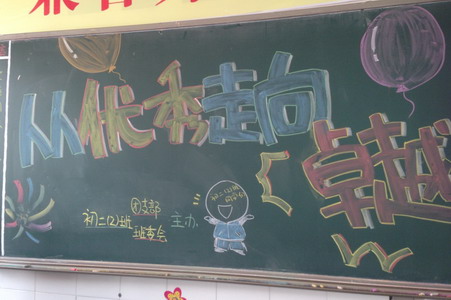 从优秀走向
卓越
团支部
初二(2)班 主办
班委会